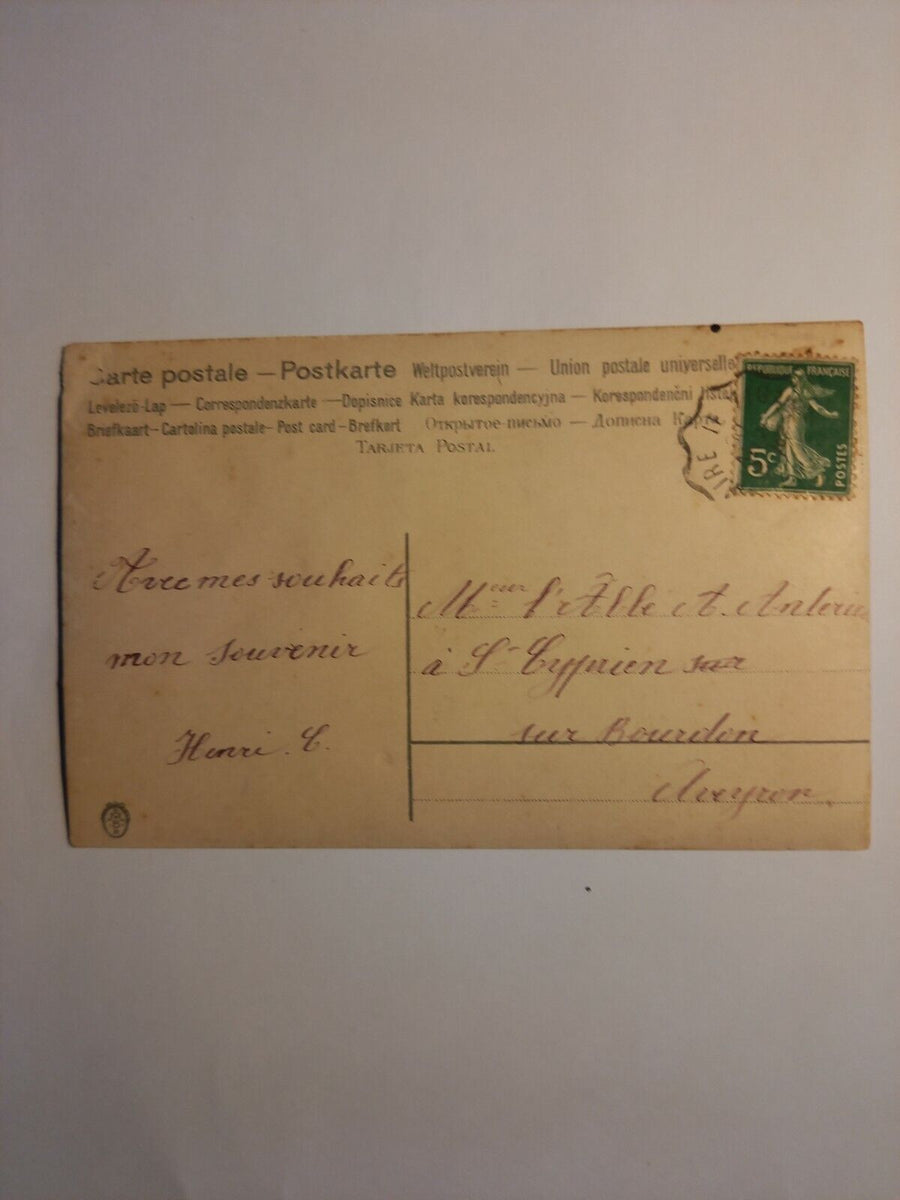 Carte postale — Postkarte Weltpostverein — Union postale universelle
Levelező-Lap — Correspondenzkarte — Dopisnice Karta korespondencyjna — Korespondenčni listak
Briefkaart - Cartolina postale - Post card - Brefkort Открытое письмо — Дописна Карта
TARJETA POSTAL
REPUBLIQUE FRANÇAISE
5c
POSTES
Avec mes souhaits
mon souvenir
Henri C.
Meur l'Abbé A.
à St Cyprien sur
sur Bourdon
Aveyron